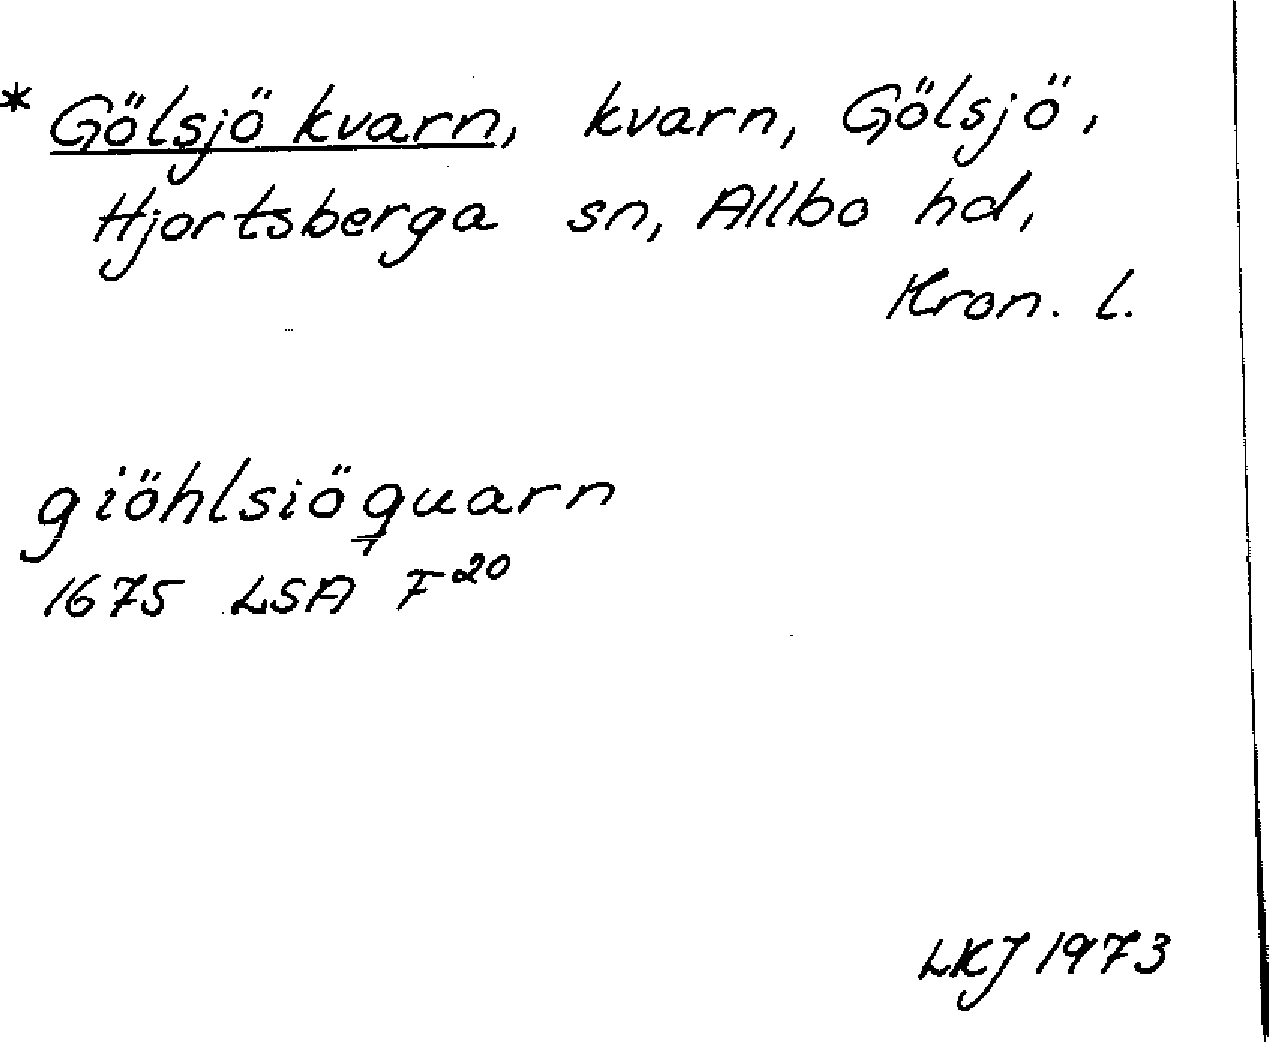 * Gölsjö kvarn, kvarn, Gölsjö,
Hjortsberga sn, Allbo hd,
Kron. l.
giöhlsiöquarn
1675 LSA F20
LKJ 1973